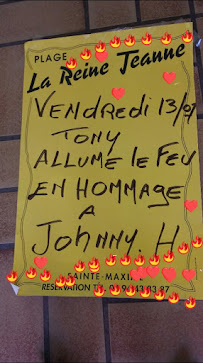 PLAGE
La Reine Jeanne
VENDREDI 13/07
TONY
ALLUME le FEU
EN HOMMAGE
A
JOHNNY. H
SAINTE-MAXIME
RESERVATION